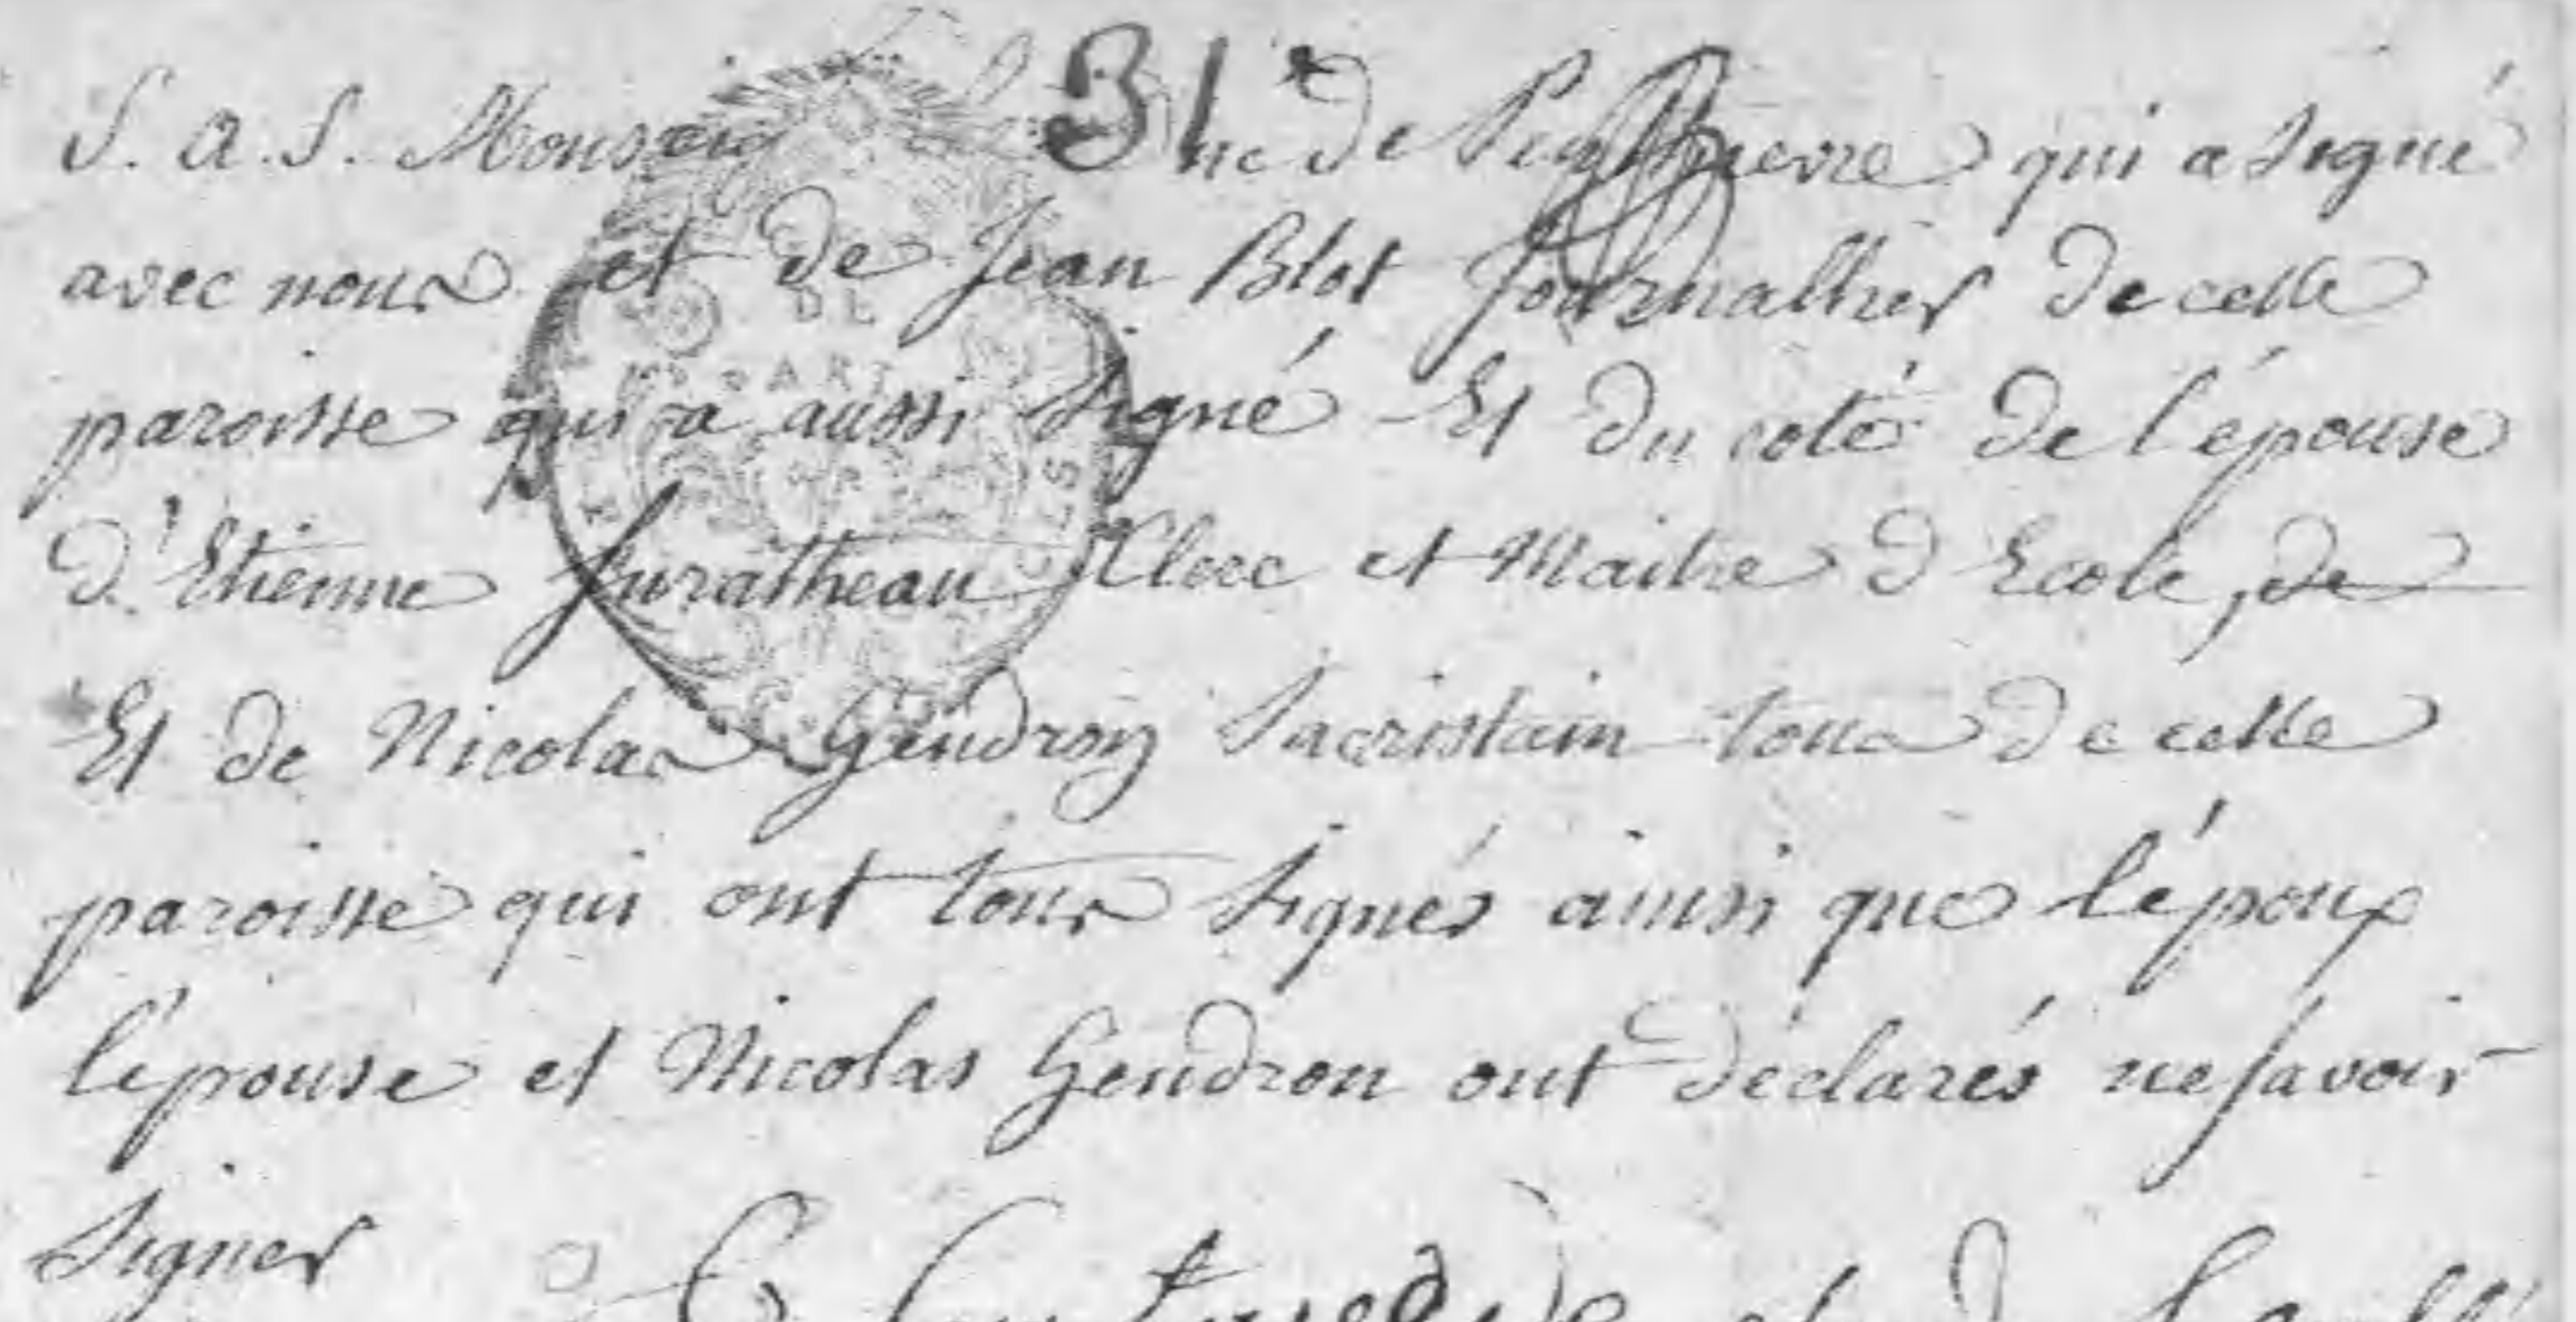 S. A. S. Monseig 31 uc de Penthievre qui a signé
avec nous et de Jean Blot Journallier de cette
paroisse qui a aussi signé Et du coté de l'épouse
d'Etienne Juratheau Clerc et Maitre d'Ecole, de
Et de Nicolas Gendron Sacristain tous de cette
paroisse qui ont tous signés ainsi que l'époux
l'épouse et Nicolas Gendron ont déclarés ne savoir
signer